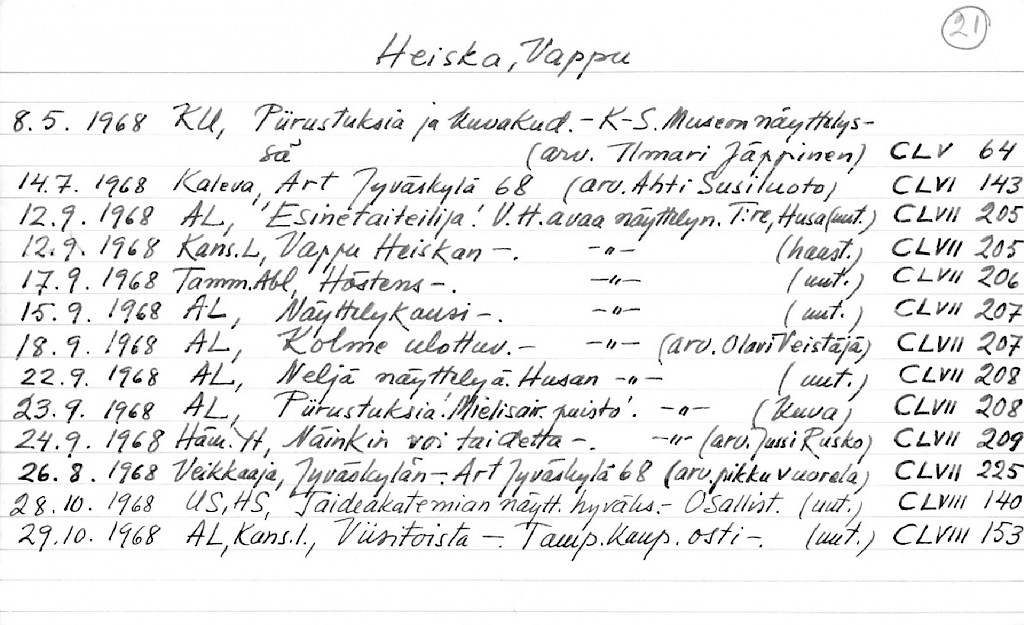 21
Heiska, Vappu
8.5. 1968 KU, Piirustuksia ja kuvakud. - K-S. Museon näyttelys-
sä (arv. Ilmari Jäppinen) CLV 64
14.7. 1968 Kaleva, Art Jyväskylä 68 (arv. Ahti Susiluoto) CLVI 143
12.9. 1968 AL, 'Esinetaiteilija'. V.H. avaa näyttelyn. T:re, Husa (uut.) CLVII 205
12.9. 1968 Kans.L, Vappu Heiskan -. -"- (haast.) CLVII 205
17.9. 1968 Tamm.Abl, Höstens -. -"- (uut.) CLVII 206
15.9. 1968 AL, Näyttelykausi -. -"- (uut.) CLVII 207
18.9. 1968 AL, Kolme ulottuv. - -"- (arv. Olavi Veistäjä) CLVII 207
22.9. 1968 AL, Neljä näyttelyä. Husan -"- (uut.) CLVII 208
23.9. 1968 AL, Piirustuksia. 'Mielisair. puisto'. -"- (kuva) CLVII 208
24.9. 1968 Häm. YH, Näinkin voi taidetta -. -"- (arv. Jussi Rusko) CLVII 209
26.8. 1968 Veikkaaja, Jyväskylän -. Art Jyväskylä 68 (arv. pikku vuorela) CLVII 225
28.10. 1968 US, HS, Taideakatemian näytt. hyväks. - Osallist. (uut.) CLVIII 140
29.10. 1968 AL, Kans.l., Viisitoista -. Tamp. kaup. osti -. (uut.) CLVIII 153